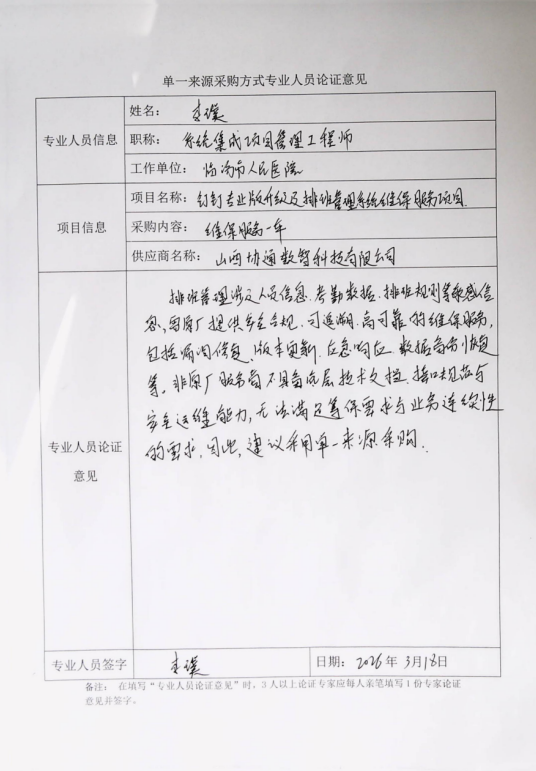 单一来源采购方式专业人员论证意见
专业人员信息
姓名：李璞
职称：系统集成项目管理工程师
工作单位：临汾市人民医院
项目信息
项目名称：钉钉专业版升级及排班管理系统维保服务项目
采购内容：维保服务一年
供应商名称：山西协通数智科技有限公司
专业人员论证
意见
排班管理涉及人员信息、考勤数据、排班规则等敏感信
息，需原厂提供安全合规、可追溯、高可靠的维保服务，
包括漏洞修复、版本更新、应急响应、数据备份恢复
等。非原厂服务商不具备底层技术文档、接口规范与
安全运维能力，无法满足等保要求与业务连续性
的要求，因此，建议采用单一来源采购．
专业人员签字
李璞
日期：2026年3月18日
备注： 在填写“专业人员论证意见”时，3人以上论证专家应每人亲笔填写1份专家论证
意见并签字。